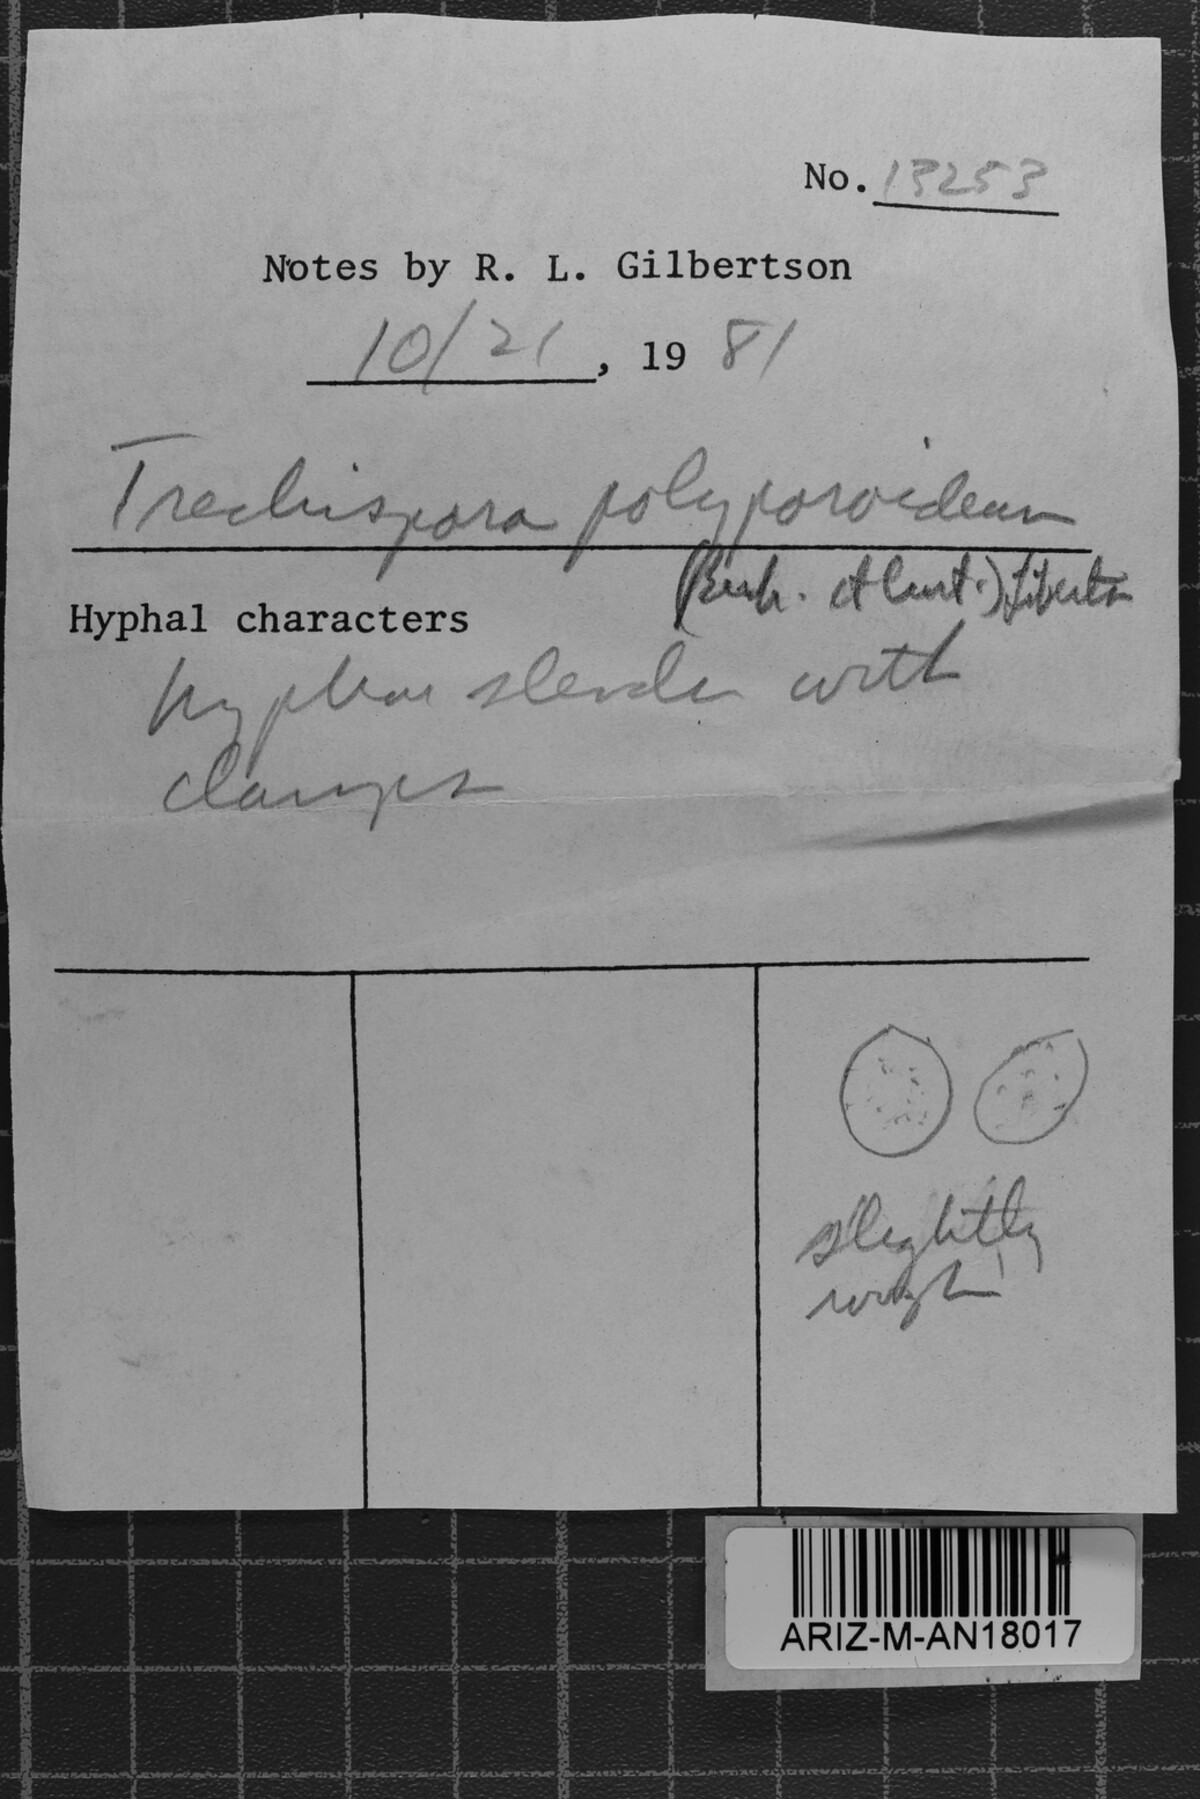 No. 13253
Notes by R. L. Gilbertson
10/21, 19 81
Trechispora polyporoideum
(Berk. et Curt.) Liberta
Hyphal characters
hyphae slender with
clamps
slightly
rough
ARIZ-M-AN18017